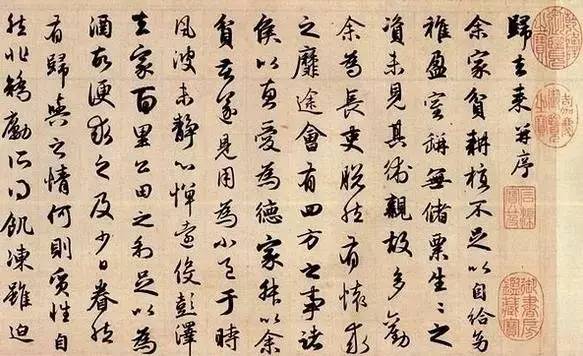 歸去来并序
余家貧耕植不足以自給幼
稚盈室缾無儲粟生生之
資未見其術親故多勸
余為長吏脫然有懷求
之靡途會有四方之事諸
侯以惠愛為德家叔以余
貧苦遂見用為小邑于時
風波未静心憚遠役彭澤
去家百里公田之利足以為
酒故便求之及少日眷然
有歸與之情何則質性自
然非矯勵所得飢凍雖迫
嘉慶御覽之寶
石渠寶笈
御書房鑑藏寶